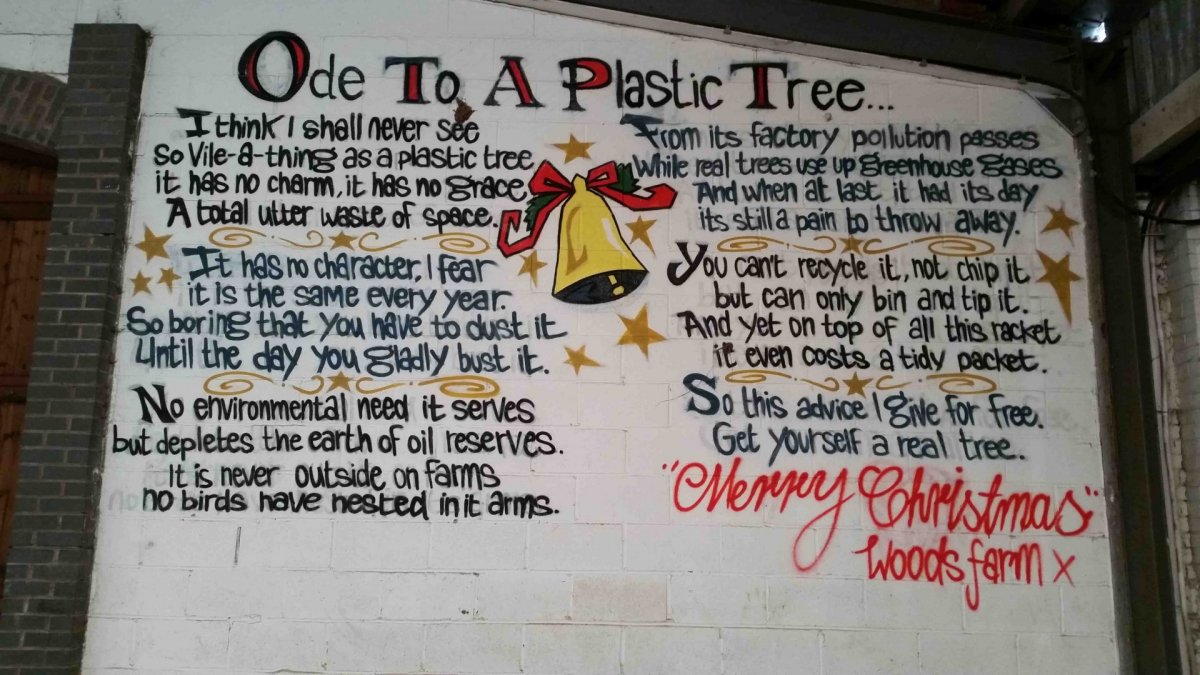 Ode To A Plastic Tree...
I think I shall never see
so Vile-a-thing as a plastic tree
it has no charm, it has no grace
A total utter waste of space.
It has no character, I fear
it is the same every year.
So boring that you have to dust it
Until the day you gladly bust it.
No environmental need it serves
but depletes the earth of oil reserves.
It is never outside on farms
no birds have nested in it arms.
From its factory pollution passes
While real trees use up greenhouse gases
And when at last it had its day
its still a pain to throw away.
You can't recycle it, not chip it
but can only bin and tip it.
And yet on top of all this racket
it even costs a tidy packet.
So this advice I give for free.
Get yourself a real tree.
"Merry Christmas"
Woods farm x